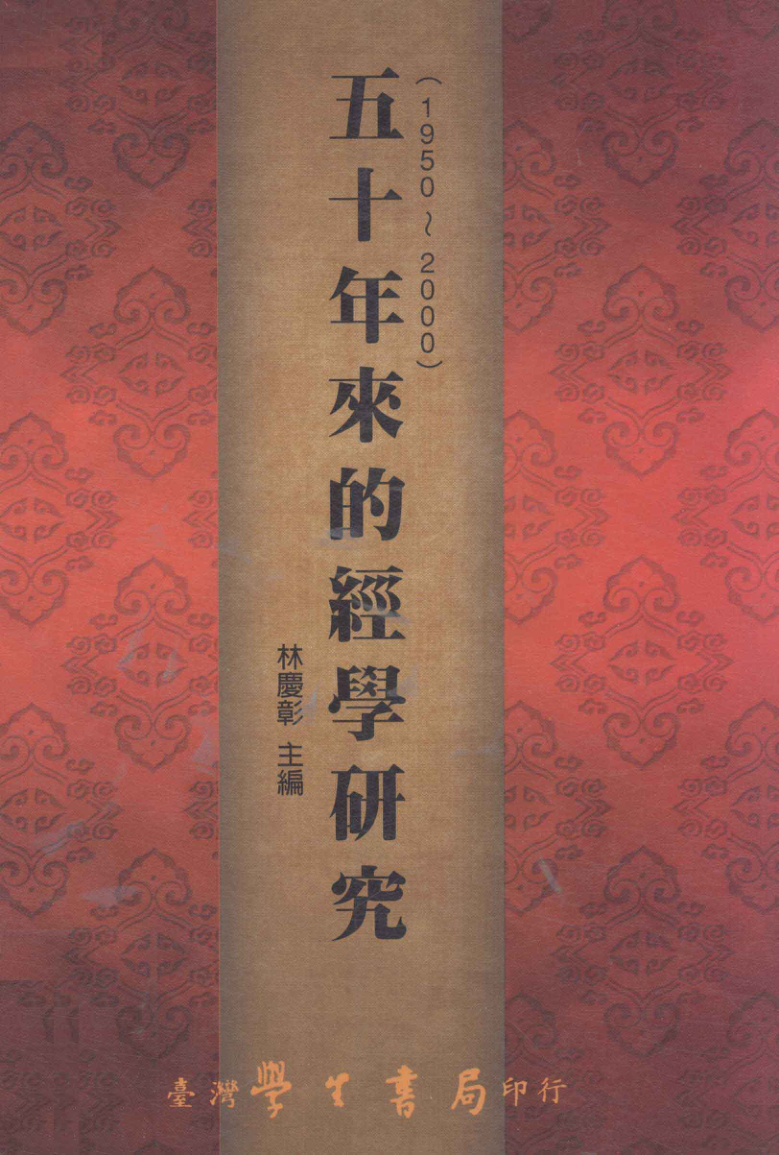 （1950～2000）
五十年來的經學研究
林慶彰 主編
臺灣學生書局印行